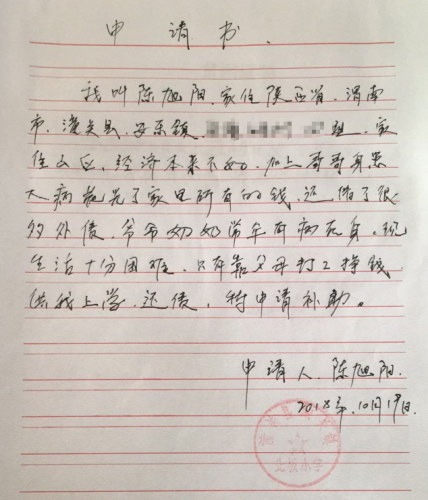 申请书.
我叫陈旭阳.家住陕西省.渭南
市.潼关县.安乐镇.组.家
住山区,经济本来不好.加上哥哥身患
大病花光了家里所有的钱,还借了很
多外债,爷爷奶奶常年有病在身.现
生活十分困难.只有靠父母打工挣钱
供我上学.还债,特申请补助。
申请人.陈旭阳.
2018年.10月19日.